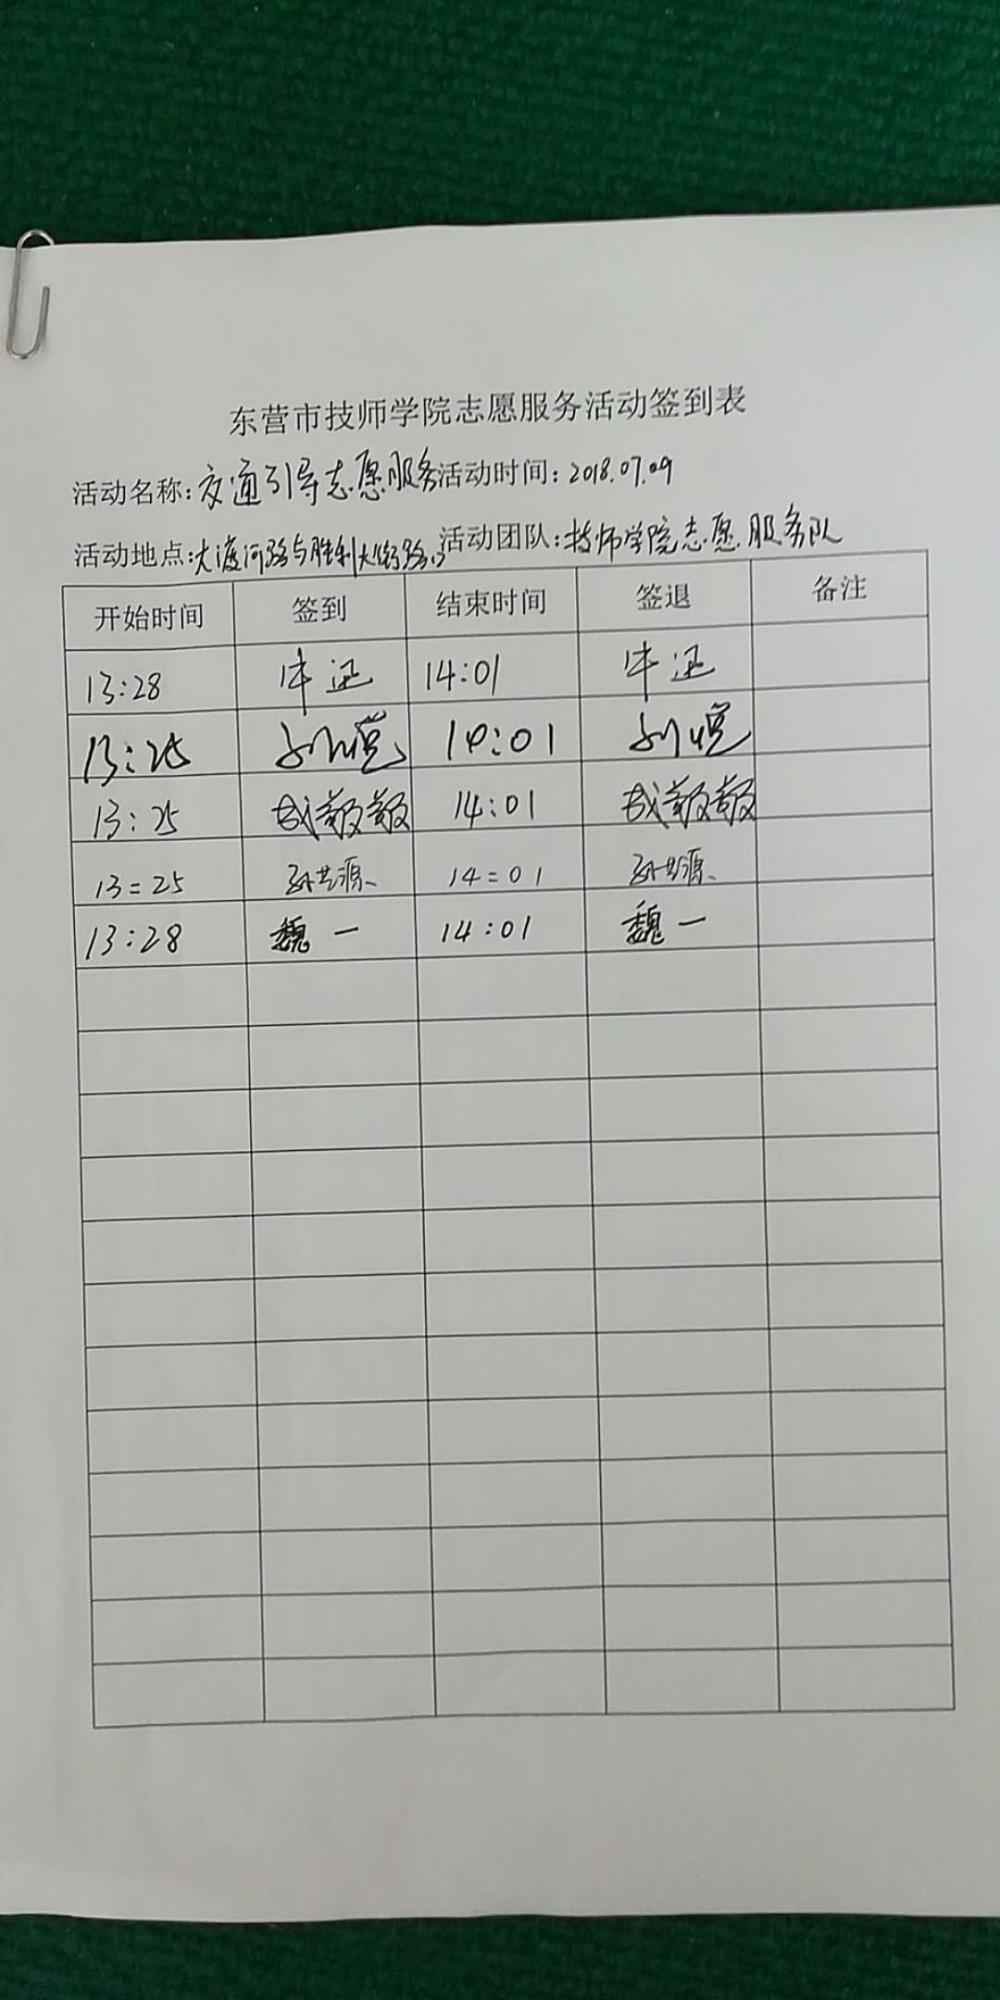 东营市技师学院志愿服务活动签到表
活动名称:交通引导志愿服务活动时间:2018.07.09
活动地点:大渡河路与胜利大街路口活动团队:技师学院志愿服务队
开始时间 签到 结束时间 签退 备注
13:28 牛迅 14:01 牛迅
13:25 14:01
13:25 成敬敬 14:01 成敬敬
13=25 孙芸源 14=01 孙芸源
13:28 魏一 14:01 魏一